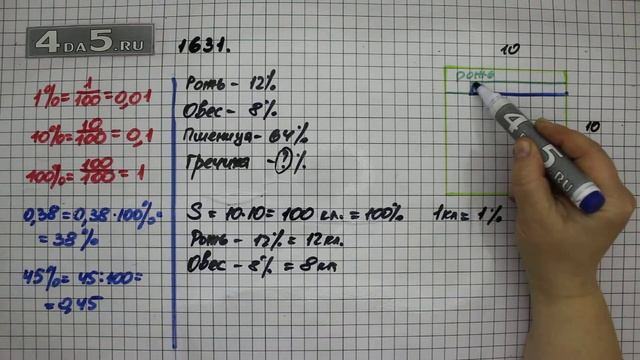 4DA5.RU
1631.
1% = 1/100 = 0,01
10% = 10/100 = 0,1
100% = 100/100 = 1
0,38 = 0,38·100% =
= 38%
45% = 45:100 =
= 0,45
Рожь - 12%
Овес - 8%
Пшеница - 64%
Гречиха - ?%
S = 10·10 = 100 кл. = 100%
1кл = 1%
Рожь - 12% = 12кл.
Овес - 8% = 8кл
10
рожь
10
4DA5.RU